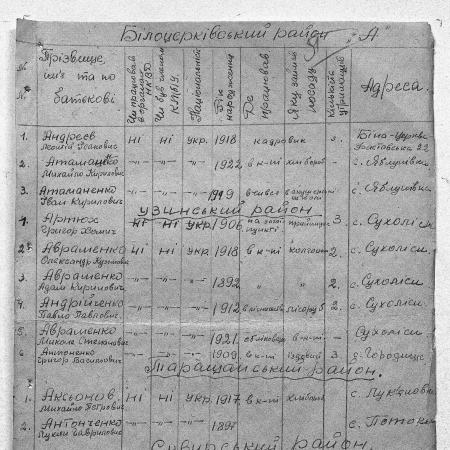 Білоцерківський район "А"
№ Прізвище, ім'я та по батькові Чи працював в органах НКВД Чи був членом КП/б/У. Національність Рік народження Де працював Яку займав посаду Кількість утриманців Адреса.
1. Андреєв Леонід Ісакович ні ні укр. 1918 кадровик 3. Біла-Церква
2. Аталаценко Михайло Кирилович -"- -"- -"- 1922 в к-ні хлібороб - с. Яблунівка
3. Атаманенко Іван Кирилович -"- -"- -"- 1919 вчився с. Яблунівка
Узинський район.
1. Артюх Григор Хомич ні ні укр 1906 3 с. Сухоліси
2. Авраменко Олександр ні ні укр. 1918 в к-ні колгосп 2. с. Сухоліси
3. Авраменко Адам Кирилович -"- -"- -"- 1892 " " 2. с. Сухоліси
4. Андрійченко Павло Павлович. -"- -"- -"- 1912 лісоруб 2. с. Сухоліси
5. Авраменко Микола Степанович -"- -"- -"- 1921 в к-ні - Сухоліси
6 Антоненко Григор Васильович -"- -"- -"- 1909 в к-ні їздовий 3 с. Городище
Таращанський район.
1. Аксьонов Михайло Петрович ні ні укр. 1917 в к-ні хлібороб с. Лук'янівка
2. Антонченко Лукян Гаврилович -"- -"- -"- 1897 с. Потоки
район.